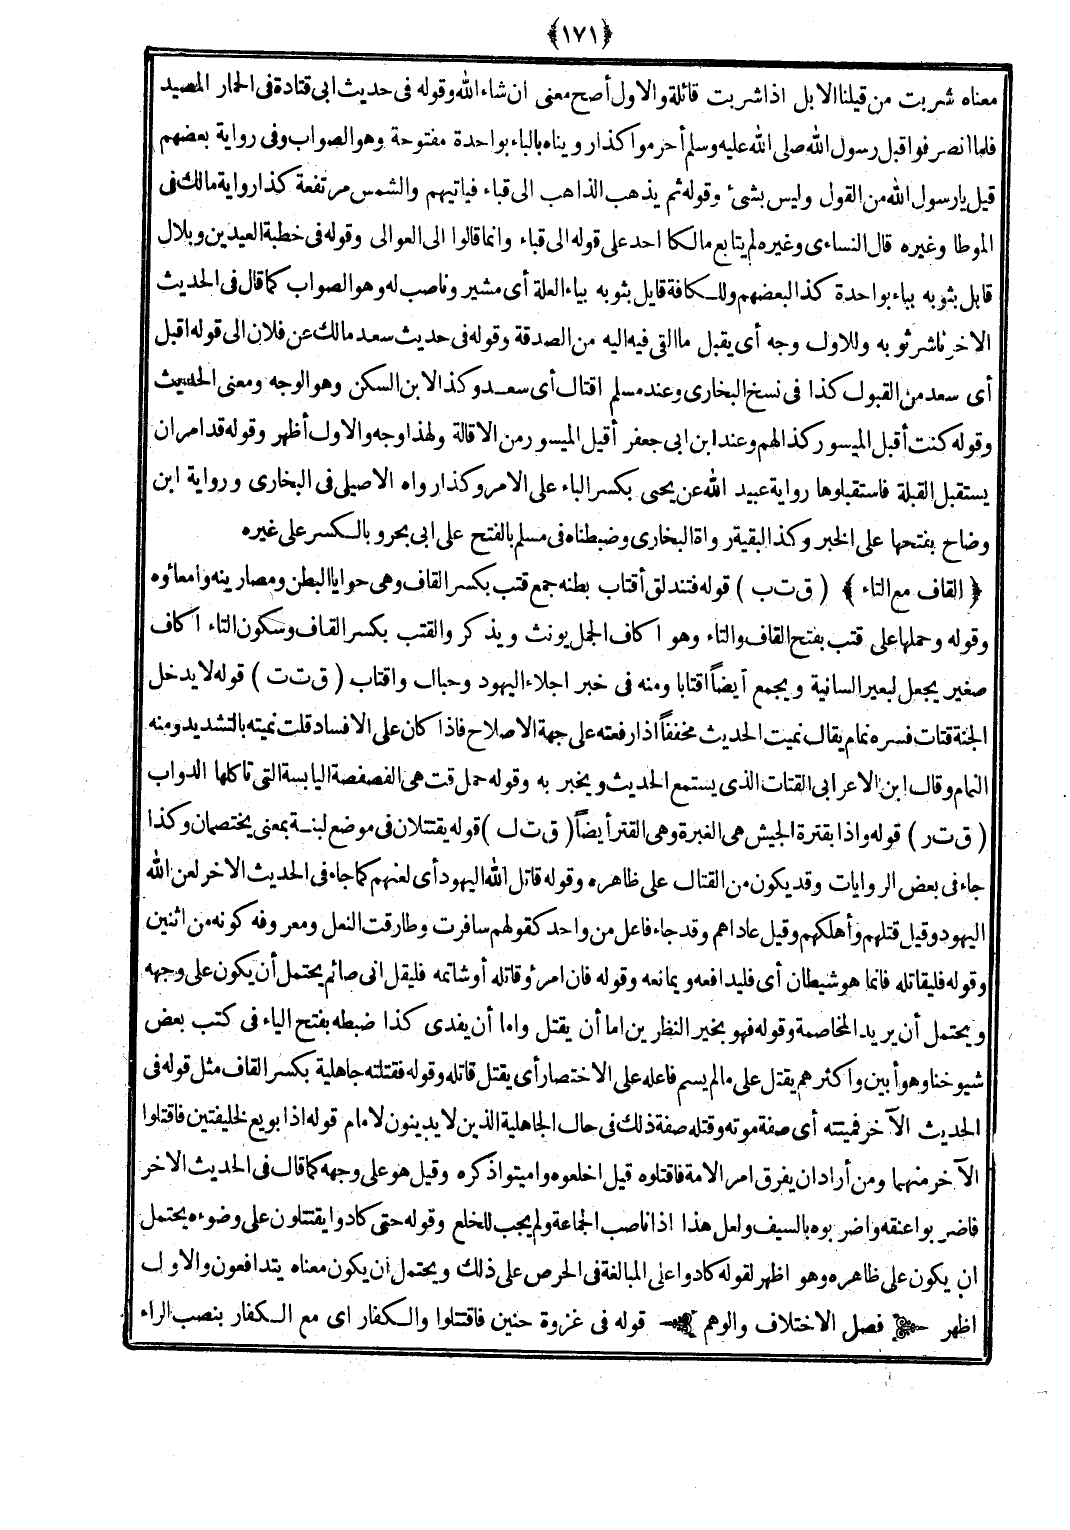 ﴿١٧١﴾
معناه شربت من قيلنا الابل اذا شربت قائلة والاول أصح معنى ان شاء الله وقوله فى حديث ابى قتادة فى الحمار المصيد
فلما انصرفوا قبل رسول الله صلى الله عليه وسلم أحرموا كذا رويناه بالباء بواحدة مفتوحة وهو الصواب وفى رواية بعضهم
قيل يا رسول الله من القول وليس بشىء وقوله ثم يذهب الذاهب الى قباء فياتيهم والشمس مرتفعة كذا رواية مالك فى
الموطا وغيره قال النساءى وغيره لم يتابع مالكا احد على قوله الى قباء وانما قالوا الى العوالى وقوله فى خطبة العيدين وبلال
قابل بثوبه بباء بواحدة كذا لبعضهم وللكافة قايل بثوبه بياء العلة أى مشير وناصب له وهو الصواب كما قال فى الحديث
الاخر ناشر ثوبه وللاول وجه أى يقبل ما القى فيه اليه من الصدقة وقوله فى حديث سعد مالك عن فلان الى قوله اقبل
أى سعد من القبول كذا فى نسخ البخارى وعند مسلم اقتال أى سعد وكذا لابن السكن وهو الوجه ومعنى الحديث
وقوله كنت أقبل الميسور كذا لهم وعند ابن ابى جعفر أقيل الميسور من الاقالة ولهذا وجه والاول أظهر وقوله قد امر ان
يستقبل القبلة فاستقبلوها رواية عبيد الله عن يحيى بكسر الباء على الامر وكذا رواه الاصيلى فى البخارى ورواية ابن
وضاح بفتحها على الخبر وكذا لبقية رواة البخارى وضبطناه فى مسلم بالفتح على ابى بحر وبالكسر على غيره
﴿ القاف مع التاء ﴾ ( ق ت ب ) قوله فتندلق أقتاب بطنه جمع قتب بكسر القاف وهى حوايا البطن ومصارينه وامعاؤه
وقوله وحملها على قتب بفتح القاف والتاء وهو اكاف الجمل يونث ويذكر والقتب بكسر القاف وسكون التاء اكاف
صغير يجعل لبعير السانية ويجمع أيضاً اقتابا ومنه فى خبر اجلاء اليهود وحبال واقتاب ( ق ت ت ) قوله لا يدخل
الجنة قتات فسره نمام يقال نميت الحديث مخففاً اذا رفعته على جهة الاصلاح فاذا كان على الافساد قلت نميته بالتشديد ومنه
النمام وقال ابن الاعرابى القتات الذى يستمع الحديث ويخبر به وقوله حمل قت هى الفصفصة اليابسة التى تاكلها الدواب
( ق ت ر ) قوله واذا بقترة الجيش هى الغبرة وهى القتر أيضاً ( ق ت ل ) قوله يقتتلان فى موضع لبنة بمعنى يختصمان وكذا
جاء فى بعض الروايات وقد يكون من القتال على ظاهره وقوله قاتل الله اليهود أى لعنهم كما جاء فى الحديث الاخر لعن الله
اليهود وقيل قتلهم وأهلكهم وقيل عاداهم وقد جاء فاعل من واحد كقولهم سافرت وطارقت النعل ومعروفه كونه من اثنين
وقوله فليقاتله فانما هو شيطان أى فليدافعه ويمانعه وقوله فان امرؤ قاتله أو شاتمه فليقل انى صائم يحتمل أن يكون على وجهه
ويحتمل أن يريد المخاصمة وقوله فهو بخير النظرين اما أن يقتل واما أن يفدى كذا ضبطه بفتح الياء فى كتب بعض
شيوخنا وهو أبين واكثرهم يقتل على ما لم يسم فاعله على الاختصار أى يقتل قاتله وقوله فقتلته جاهلية بكسر القاف مثل قوله فى
الحديث الآخر فميتته أى صفة موته وقتله صفة ذلك فى حال الجاهلية الذين لا يدينون لامام قوله اذا بويع لخليفتين فاقتلوا
الآخر منهما ومن أراد ان يفرق امر الامة فاقتلوه قيل اخلعوه واميتوا ذكره وقيل هو على وجهه كما قال فى الحديث الاخر
فاضربوا عنقه واضربوه بالسيف ولعل هذا اذا ناصب الجماعة ولم يجب للخلع وقوله حتى كادوا يقتتلون على وضوءه يحتمل
ان يكون على ظاهره وهو اظهر لقوله كادوا على المبالغة فى الحرص على ذلك ويحتمل أن يكون معناه يتدافعون والاول
اظهر ﴿ فصل الاختلاف والوهم ﴾ قوله فى غزوة حنين فاقتتلوا والكفار اى مع الكفار بنصب الراء